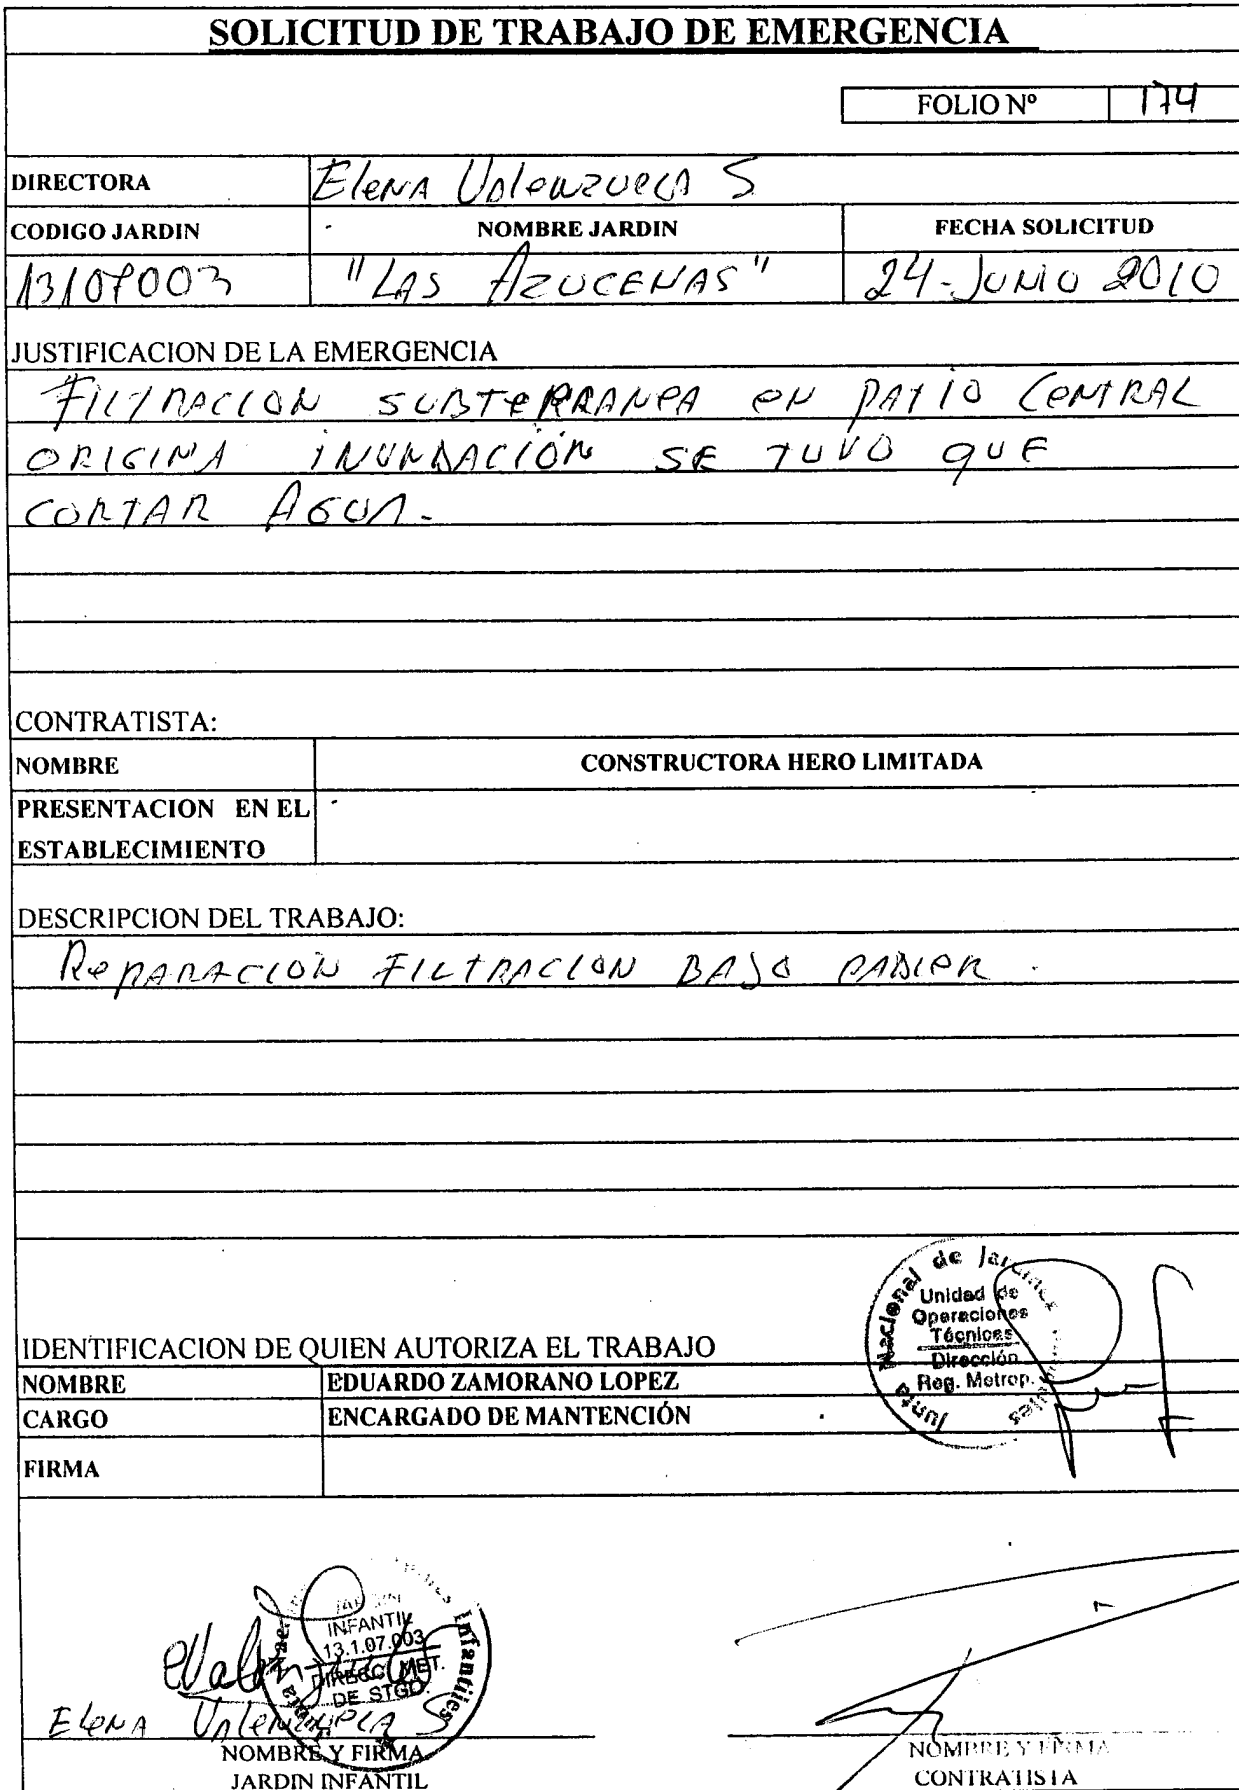 SOLICITUD DE TRABAJO DE EMERGENCIA
FOLIO Nº 174
DIRECTORA Elena Valenzuela S
CODIGO JARDIN NOMBRE JARDIN FECHA SOLICITUD
13107003 "LAS AZUCENAS" 24-JUNIO 2010
JUSTIFICACION DE LA EMERGENCIA
FILTRACION SUBTERRANEA EN PATIO CENTRAL
ORIGINA INUNDACIÓN SE TUVO QUE
CORTAR AGUA.
CONTRATISTA:
NOMBRE CONSTRUCTORA HERO LIMITADA
PRESENTACION EN EL
ESTABLECIMIENTO
DESCRIPCION DEL TRABAJO:
REPARACION FILTRACION BAJO
Junta Nacional de Jardines
Unidad de
Operaciones
Técnicas
Dirección
Reg. Metrop.
IDENTIFICACION DE QUIEN AUTORIZA EL TRABAJO
NOMBRE EDUARDO ZAMORANO LOPEZ
CARGO ENCARGADO DE MANTENCIÓN
FIRMA
JARDIN
INFANTIL
13.1.07.003
DIRECC. MET.
DE STGO.
Infantiles
Elena Valenzuela S
NOMBRE Y FIRMA
JARDIN INFANTIL
NOMBRE Y FIRMA
CONTRATISTA